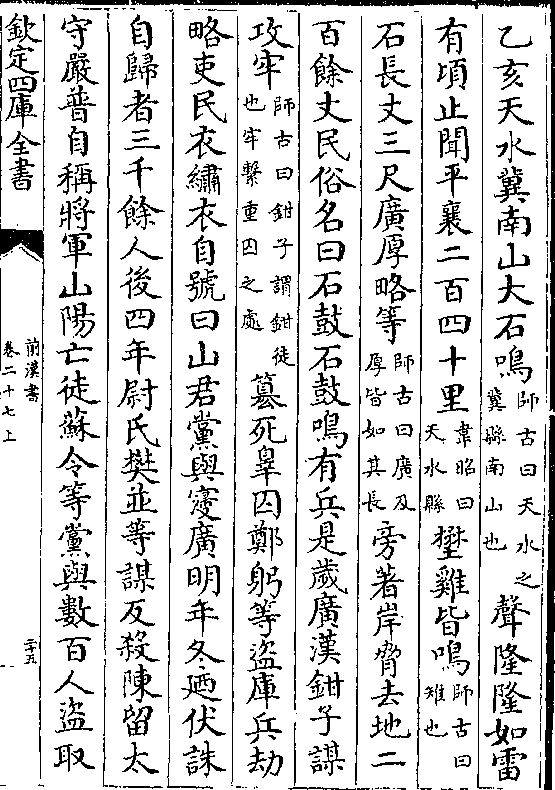 乙亥天水冀南山大石鳴師古曰天水之冀縣南山也聲隆隆如雷
有頃止聞平襄二百四十里韋昭曰天水縣壄雞皆鳴師古曰雉也
石長丈三尺廣厚略等師古曰廣及厚皆如其長旁著岸脅去地二
百餘丈民俗名曰石鼓石鼓鳴有兵是歲廣漢鉗子謀
攻牢師古曰鉗子謂鉗徒也牢繫重囚之處簒死辠囚鄭躬等盜庫兵劫
略吏民衣繡衣自號曰山君黨與寖廣明年冬廼伏誅
自歸者三千餘人後四年尉氏樊並等謀反殺陳留太
守嚴普自稱將軍山陽亡徒蘇令等黨與數百人盜取
欽定四庫全書
前漢書
卷二十七上
二十五